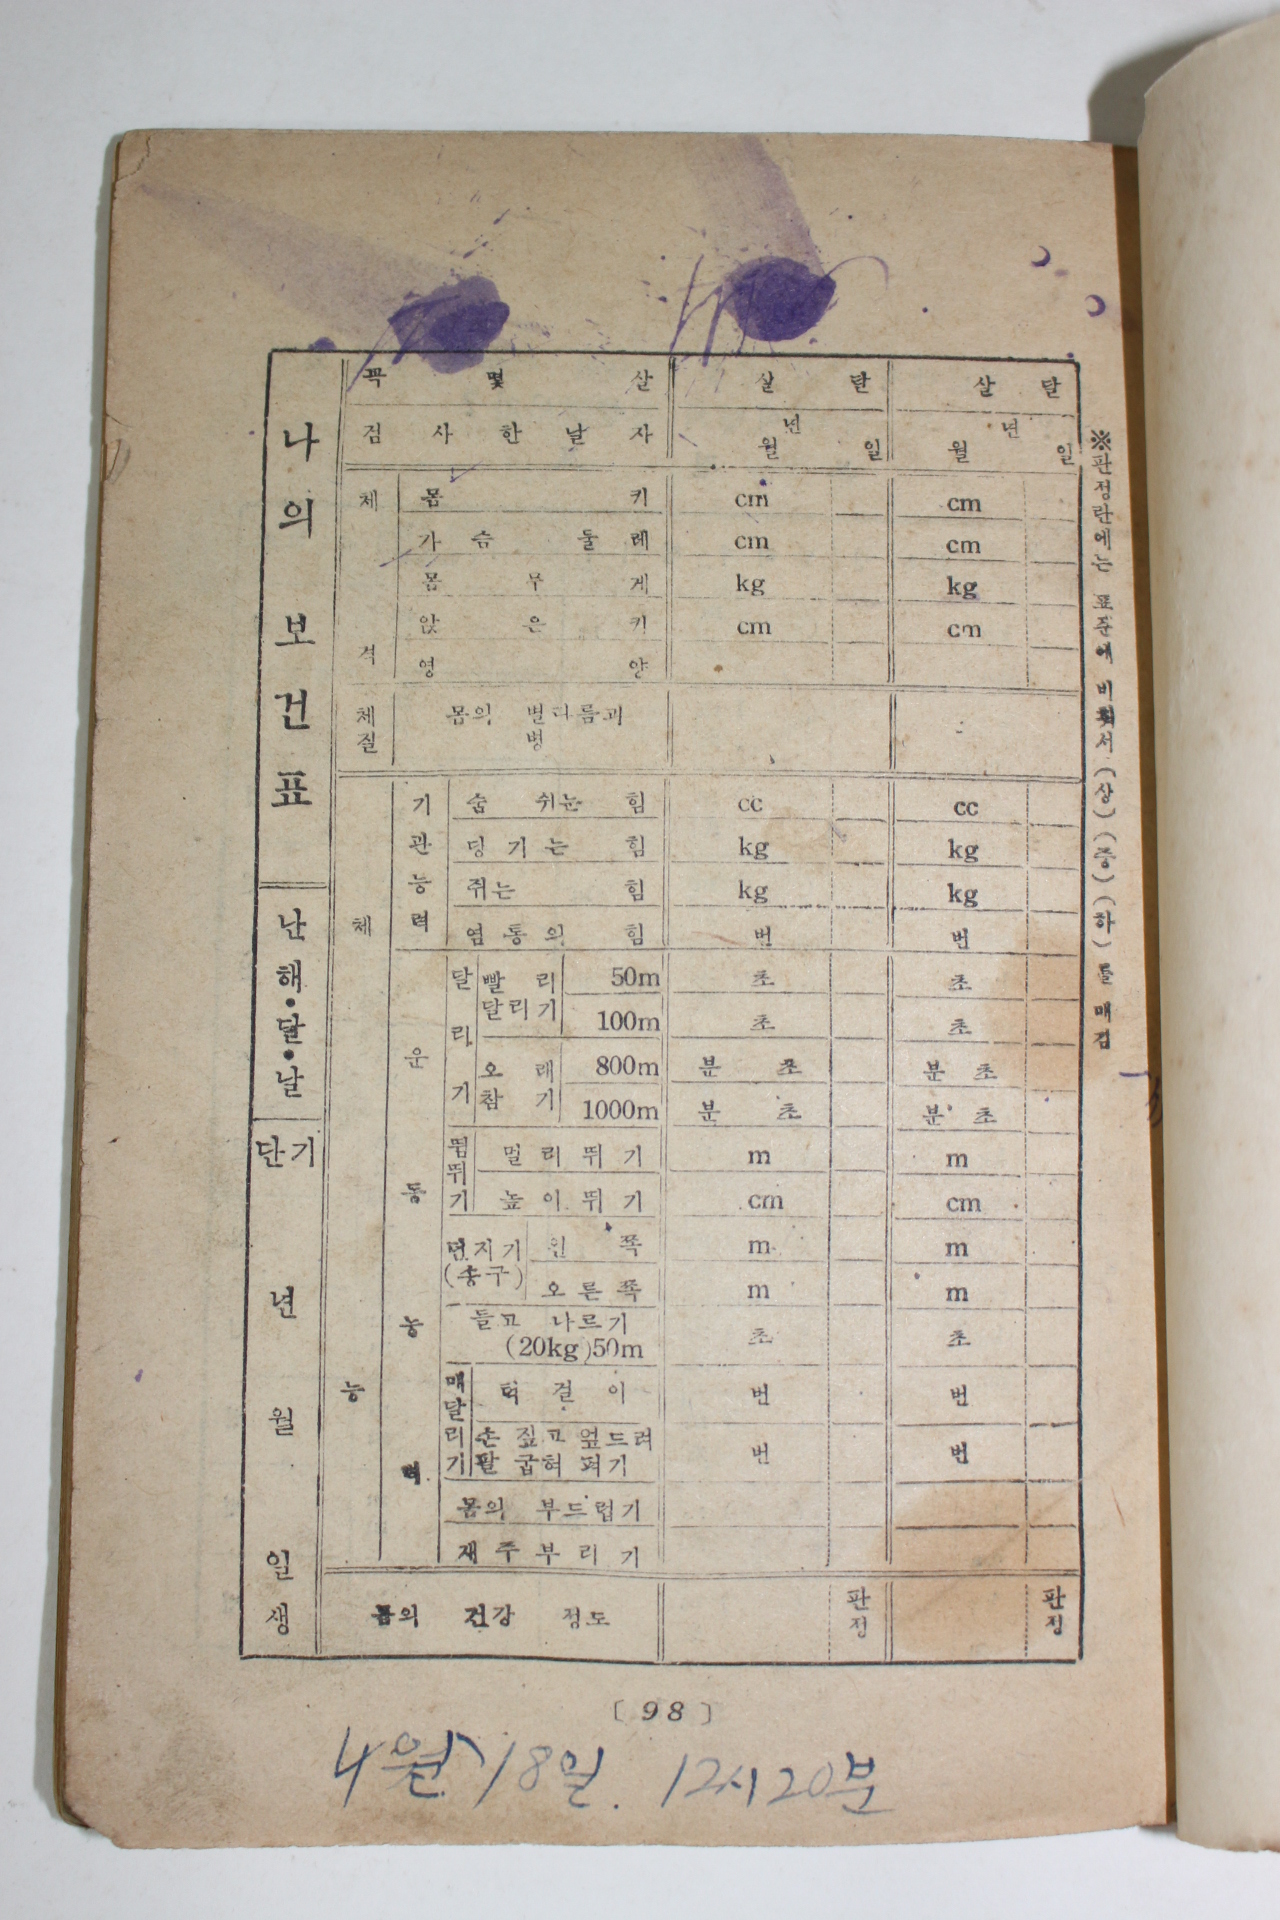 나의 보건표
난해・달・날
단기
년
월
일
생
꼭 몇 살 살 달 살 달
검사한 날자 년 월 일 년 월 일
체격
몸 키 cm cm
가슴 둘레 cm cm
몸 무게 kg kg
앉은 키 cm cm
영양
체질 몸의 별다름과 병
체능
기관능력
숨 쉬는 힘 cc cc
당기는 힘 kg kg
쥐는 힘 kg kg
염통의 힘 번 번
운동능력
달리기
빨리 달리기 50m 초 초
100m 초 초
오래 참기 800m 분 초 분 초
1000m 분 초 분 초
뜀뛰기
멀리뛰기 m m
높이뛰기 cm cm
던지기 (송구)
왼 쪽 m m
오른쪽 m m
들고 나르기 (20kg)50m 초 초
매달리기
턱걸이 번 번
손 짚고 엎드려 팔 굽혀 펴기 번 번
몸의 부드럽기
재주부리기
몸의 건강 정도 판정 판정
※판정란에는 표준에 비춰서 (상) (중) (하) 를 매김
〔 98 〕
4월 18일. 12시 20분